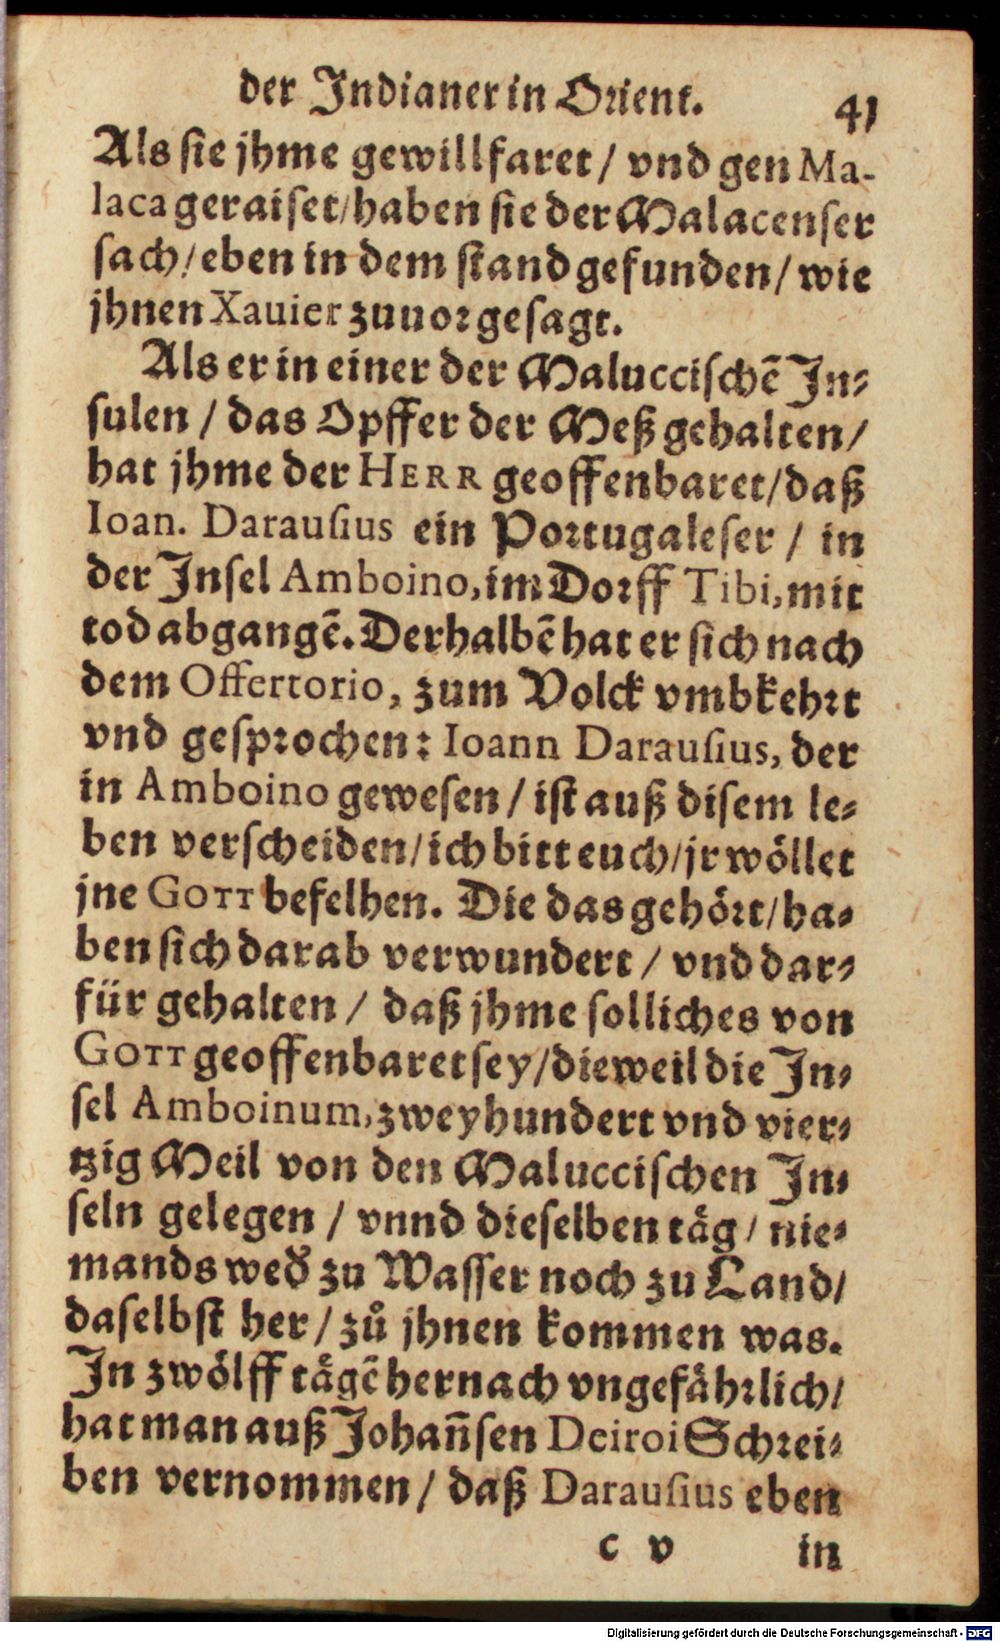 der Indianer in Orient. 41
Als sie jhme gewillfaret / vnd gen Ma-
laca geraiset / haben sie der Malacenser
sach / eben in dem stand gefunden / wie
jhnen Xauier zuuor gesagt.
Als er in einer der Maluccischẽ In-
sulen / das Opffer der Meß gehalten /
hat jhme der HERR geoffenbaret / daß
Ioan. Darausius ein Portugaleser / in
der Insel Amboino, im Dorff Tibi, mit
tod abgangẽ. Derhalbẽ hat er sich nach
dem Offertorio, zum Volck vmbkehrt
vnd gesprochen: Ioann Darausius, der
in Amboino gewesen / ist auß disem le-
ben verscheiden / ich bitt euch / jr wöllet
jne GOTT befelhen. Die das gehört / ha-
ben sich darab verwundert / vnd dar-
für gehalten / daß jhme solliches von
GOTT geoffenbaret sey / dieweil die In-
sel Amboinum, zweyhundert vnd vier-
tzig Meil von den Maluccischen In-
seln gelegen / vnnd dieselben täg / nie-
mands wed̃ zu Wasser noch zu Land /
daselbst her / zů jhnen kommen was.
In zwölff tägẽ hernach vngefährlich /
hat man auß Johañsen Deiroi Schrei-
ben vernommen / daß Darausius eben
c v in
Digitalisierung gefördert durch die Deutsche Forschungsgemeinschaft - DFG